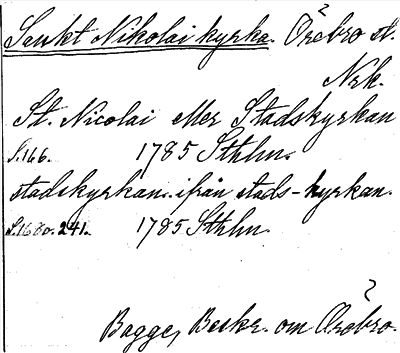 Sankt Nikolai kyrka. Örebro st.
Nrk.
St. Nicolai eller Stadskyrkan
S. 166. 1785 Sthlm.
stadskyrkan. ifrån stads-kyrkan.
S. 168 o. 241. 1785 Sthlm.
Bagge, Beskr. om Örebro.